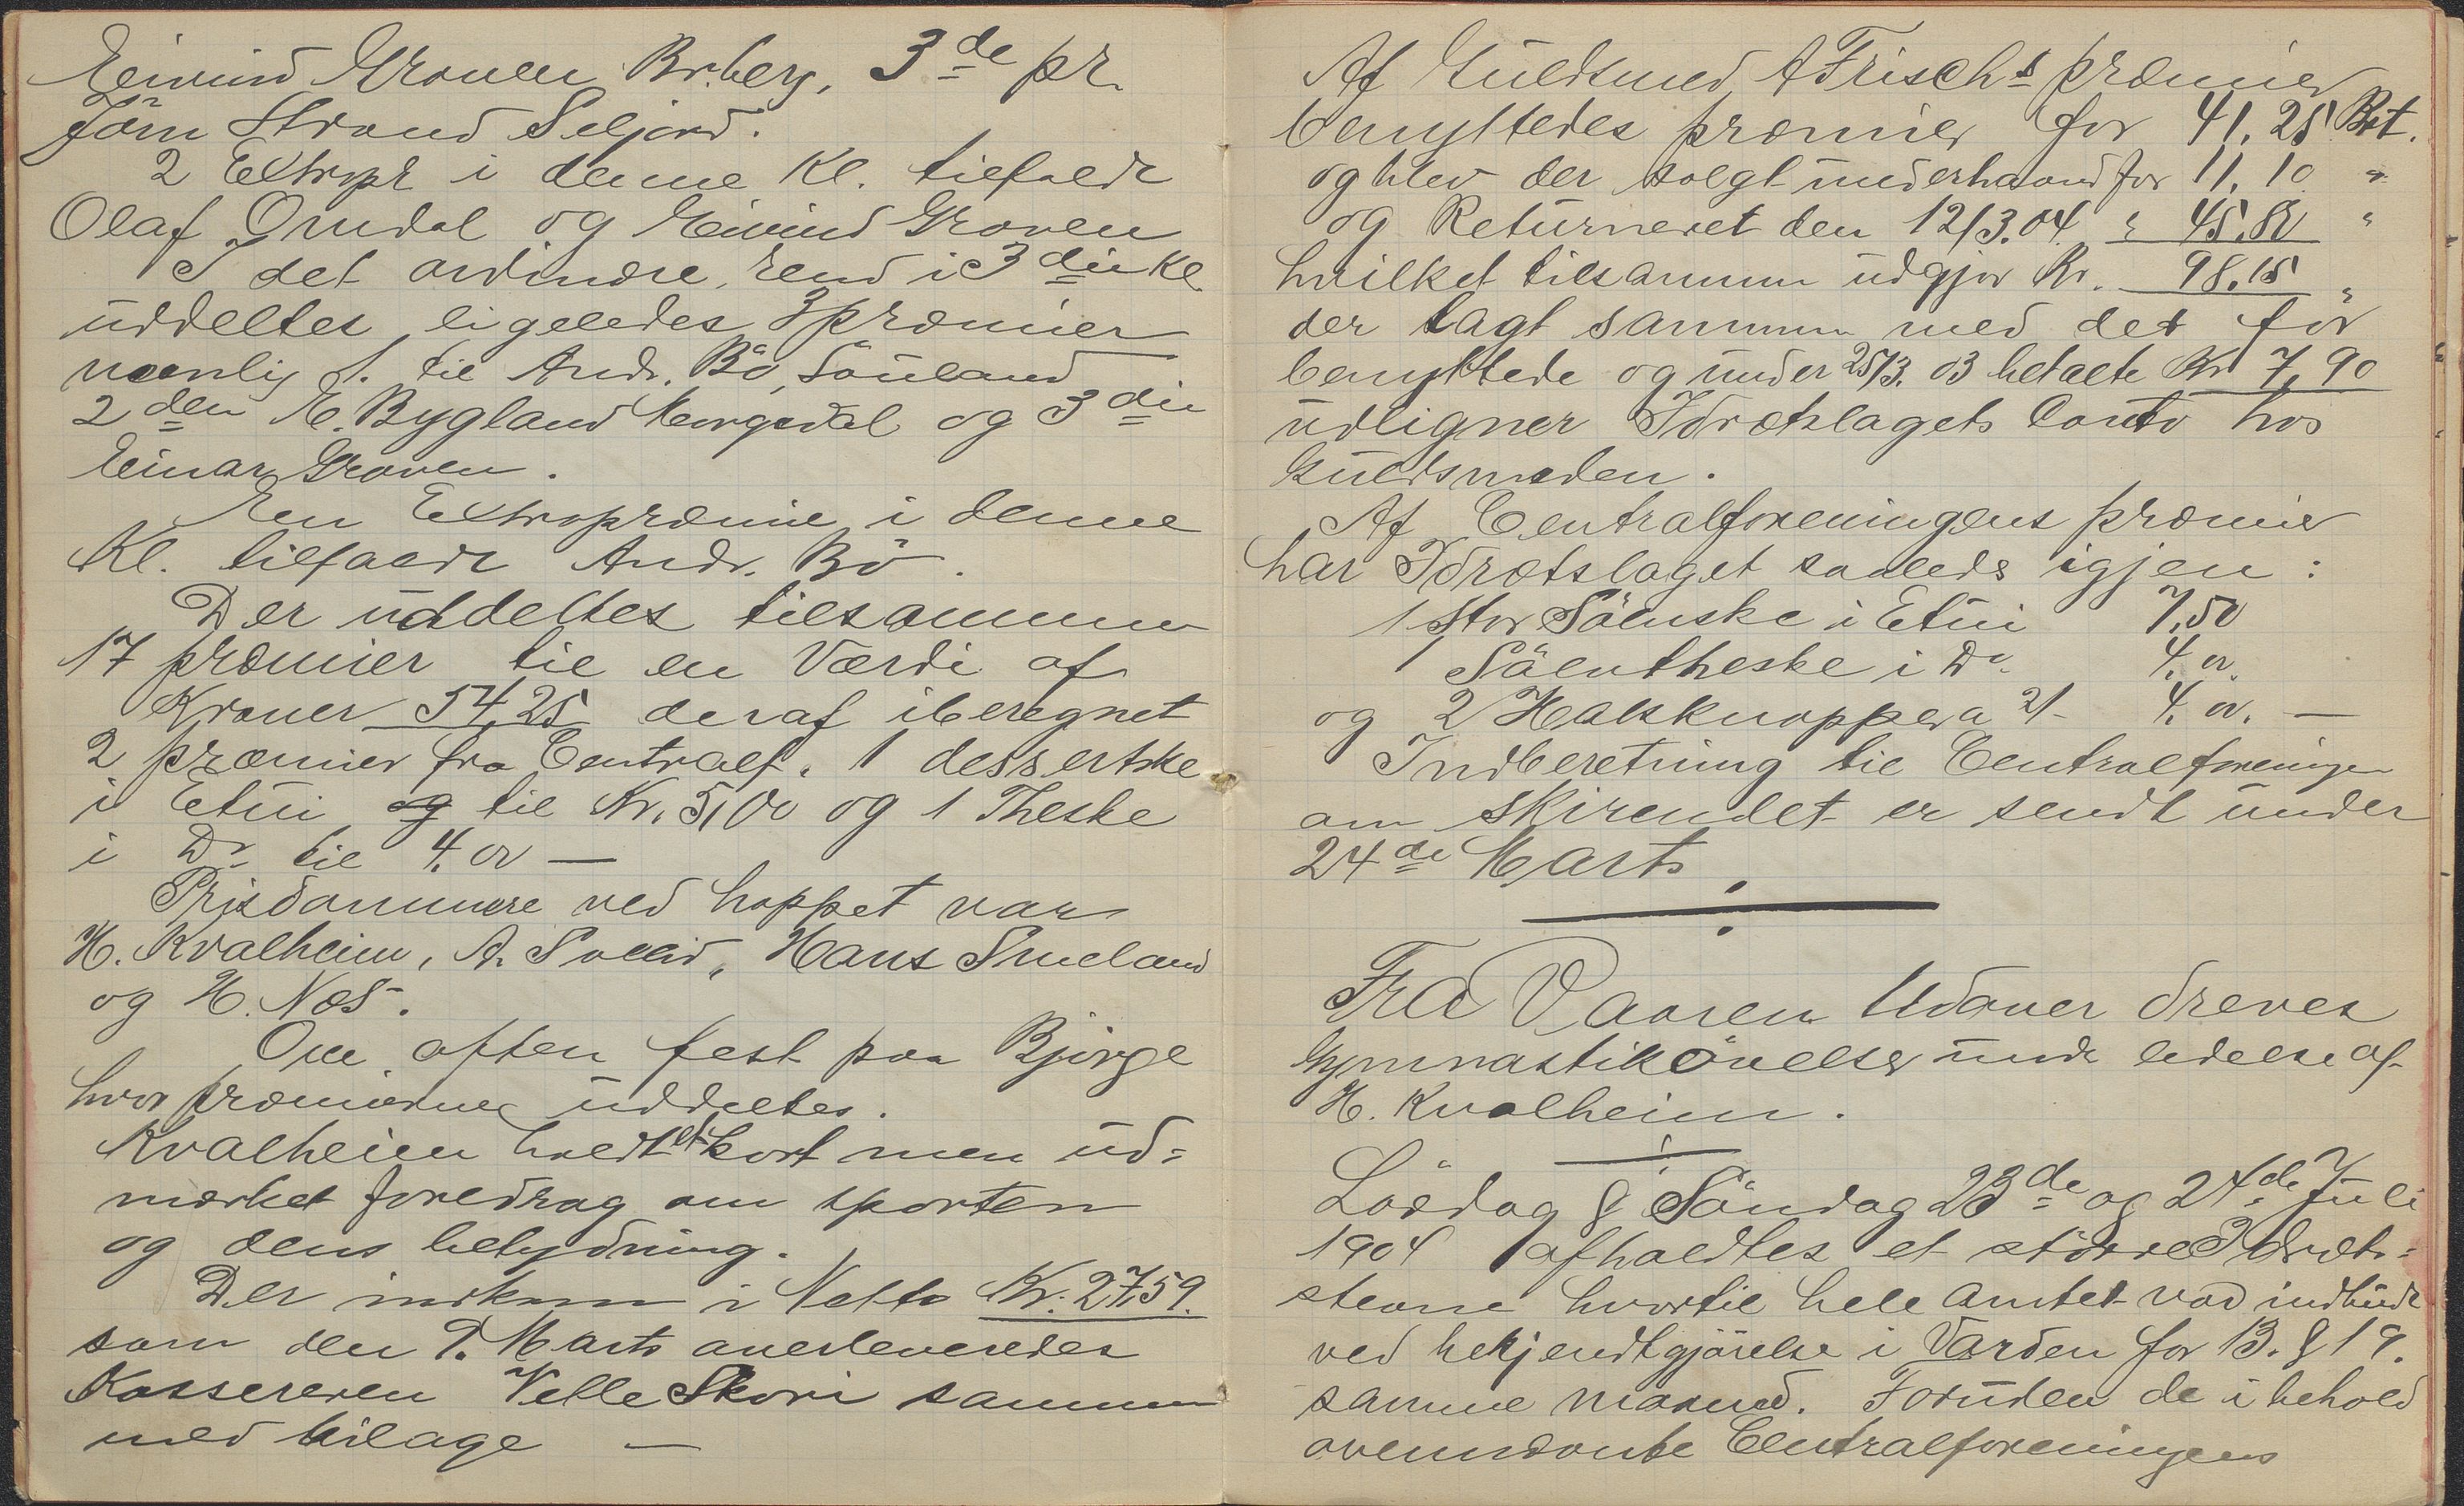 Eivind Groven Br.berg, 3de pr.
Jörn Strand Seljord.
2 Extrapr i denne Kl. tilfaldt
Olaf Omdal og Eivind Groven
I det ordinære rend i 3die Kl.
uddeltes ligeledes 3 præmier
nemlig 1. til Andr. Bö, Sauland
2den E. Bygland Morgedal og 3die
Einar Groven.
En Extrapræmie i denne
Kl. tilfaldt Andr. Bö.
Der uddeltes tilsammen
17 præmier til en Værdi af
Kroner 54,25 deraf iberegnet
2 præmier fra Centralf. 1 dessertske
i Etui og til Kr. 5,00 og 1 Theske
i Do til 4.00 —
Prisdommere ved hoppet var
H. Kvalheim, A. Sollid, Hans Smeland
og H. Næs.
Om aften fest paa Bjørge
hvor præmierne uddeltes.
Kvalheim holdt et kort men ud=
mærket foredrag om sporten
og dens betydning.
Der indkom i Netto Kr. 27,59.
som den 9. Marts overleveredes
Kassereren Velle Skori sammen
med bilage —
Af Guldsmed A Frisch's præmier
benyttedes præmier for 41.25 Bet.
og blev der solgt underhaand for 11.10 "
og Returneret den 12/3.04 " 45.80 "
hvilket tilsammen udgjør Kr. 98.15 "
der lagt sammen med det før
benyttede og under 25/3.03 betalte Kr 7,90
udligner Idrætslagets Conto hos
Guldsmeden.
Af Centralforeningens præmier
har Idrætslaget saaleds igjen:
1 Stor Sölvske i Etui 7,50
1 Sölvtheske i Do 4.00
og 2 Halsknapper a 2/- 4.00. —
Indberetning til Centralforeningen
om skirendet er sendt under
24de Marts
Fra Vaaren Udover dreves
Gymnastikövelser under ledelse af
H. Kvalheim.
Lördag & Söndag 23de og 24de Juli
1904 afholdtes et större Idræts=
stevne hvortil hele Amtet var indbudt
ved bekjendtgjörelse i Varden for 13. & 19.
samme maaned. Foruden de i behold
ovennævnte Centralforeningens